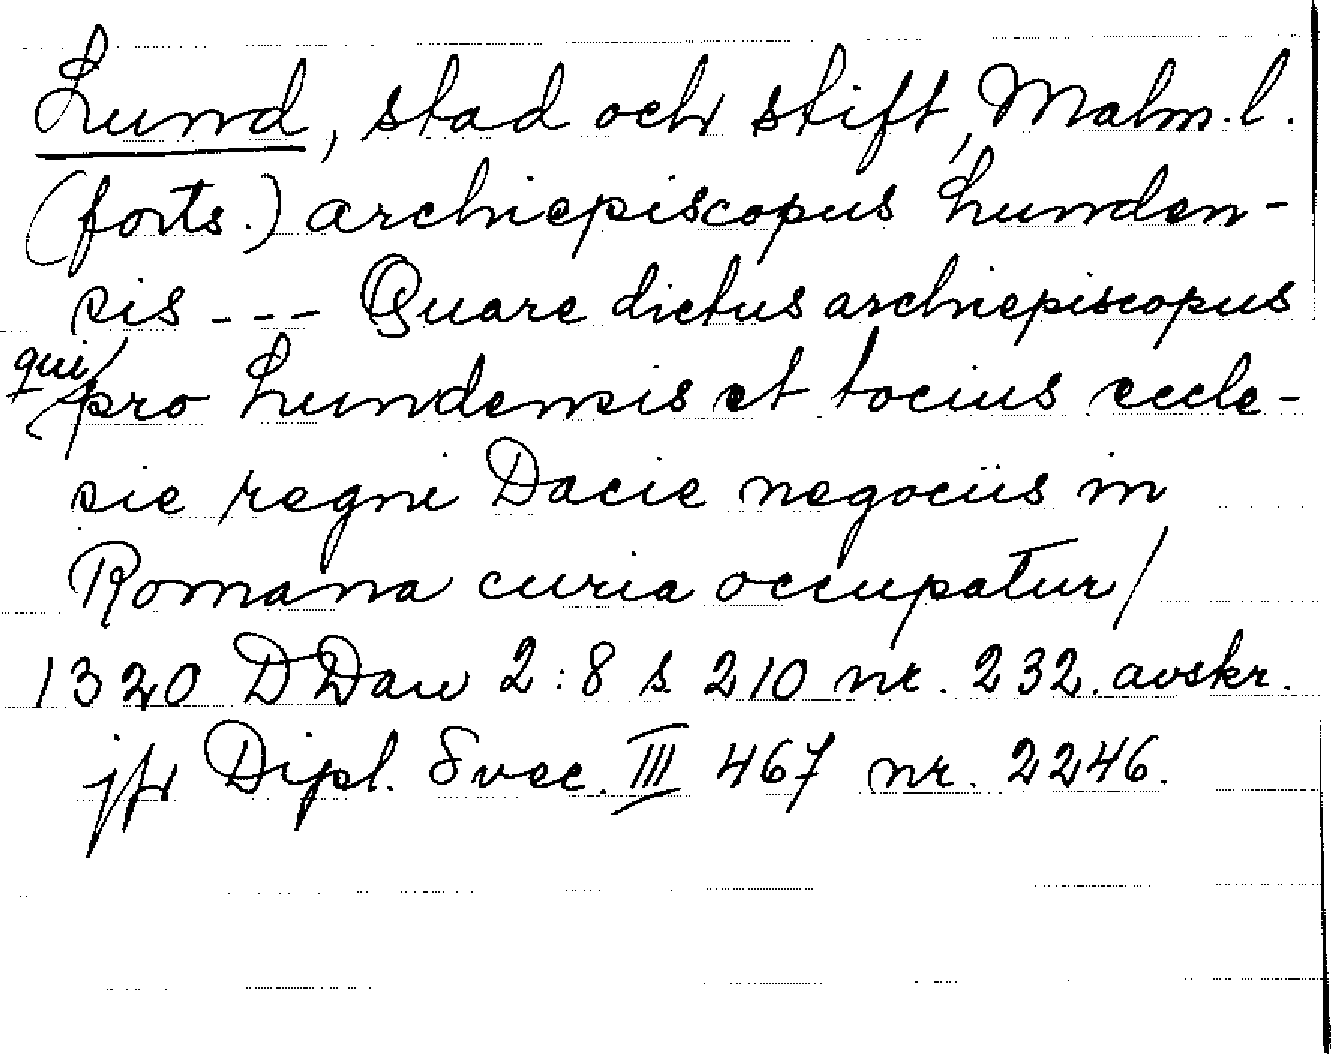 Lund, stad och stift, Malm.l.
(forts.) archiepiscopus Lunden-
sis --- Quare dictus archiepiscopus
qui/pro Lundensis et tocius eccle-
sie regni Dacie negociis in
Romana curia occupatur/
1320 DDan 2:8 s 210 nr. 232. avskr.
jfr Dipl. Svec. III 467 nr. 2246.